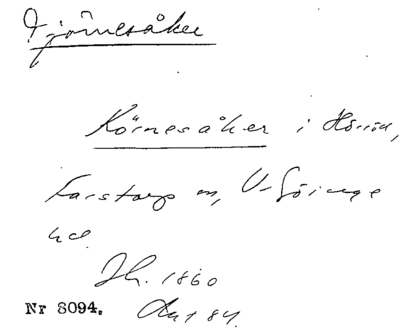 Tjörnesåker
Körnesåker i Hörröd,
Farstorp sn, V. Göinge
hd.
Jh. 1860
Nr 8094.